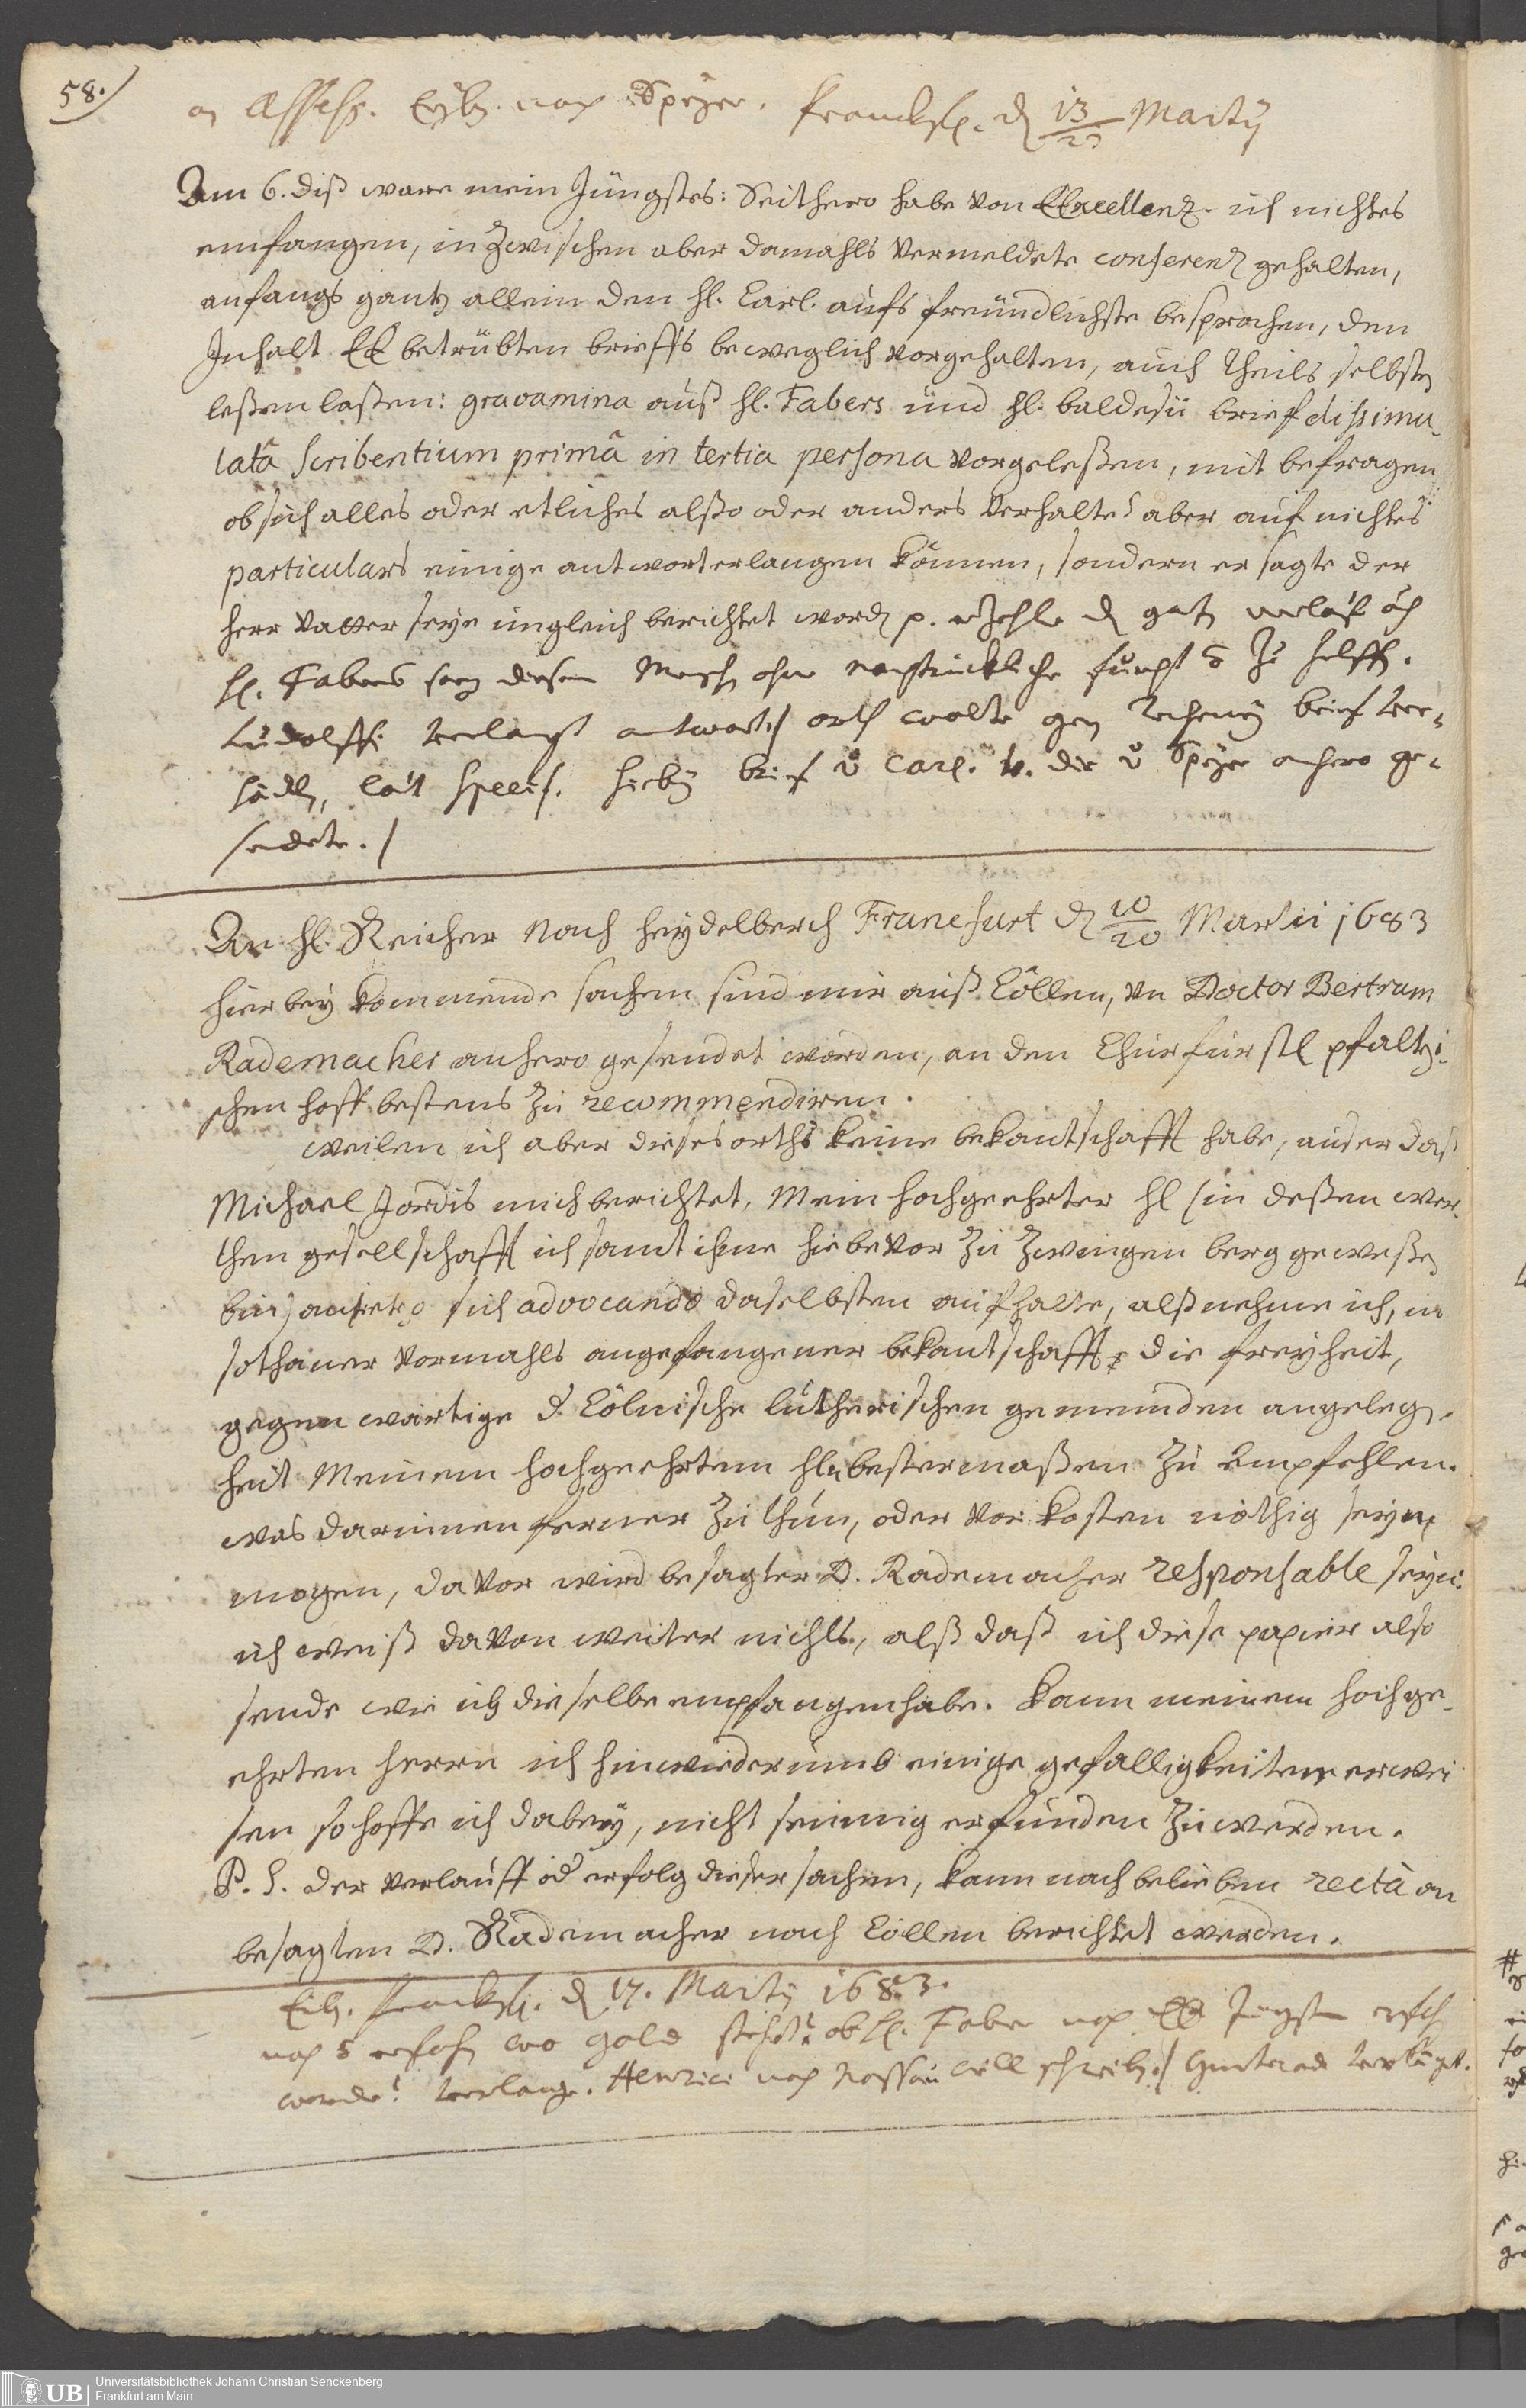 58.)
an Assess. nach Speyer. Franckf. d 13/23 Martÿ
Am 6. diß ware mein Jüngstes: Seithero habe von EExcellenz. ich nichtes
emfangen, in zwischen aber damahls vermeldete conferenz gehalten,
anfangs gantz allein den hl. Carl. aufs freündlichste besprochen, den
Inhalt EE betrübten brieffs beweglich vorgehalten, auch theils selbsten
leßen laßen: gravamina auß hl. Fabers und hl. baldesii brief dissimu-
latâ scribentium primâ in tertia persona vorgeleßen, mit befragen
ob sich alles oder etliches alßo oder anders verhalte? aber auf nichtes
particulars einige antwort erlangen können, sondern er sagte der
herr vatter seye ungleich berichtet word p.
hl. Fabers diesen ohne furcht zu helffen.
Ludolffi verlangt antwort/ wolte gen brief
hieby brief v Carl. die v Speyer anhero ge-
sendete./
An hl. Reicher nach heydelberch Francfurt d 10/20 Martii 1683
hierbey kommende sachen sind mir auß Cöllen, vn Doctor Bertram
Rademacher anhero gesendet worden, an den Churfürstl pfaltzi-
schen hoff bestens zu recommendiren.
weilen ich aber dieses orths keine bekantschafft habe, auser daß
Michael Jordis mich berichtet, Mein hochgeehrter hl (in deßen wer-
then gesellschafft ich samt ihme hiebevor zu Zwingen berg geweßen
bin) anietzo sich advocando daselbsten aufhalte, alß nehme ich, in
sothaner vormahls angefangener bekantschafft die freyheit,
gegenwärtige d. Cölnische lutherischen gemeinden angelegen-
heit Meinem hochgeehrtem hln bestermaßen zu empfehlen.
was darinnen ferner zu thun, oder vor kosten nöthig seyn
mögen, davor wird besagter D. Rademacher responsable seyn.
ich weiß davon weiter nichts, alß daß ich diese papier also
sende wie ich dieselbe empfangen habe. kann meinem hochge-
ehrten herrn ich hinwiederumb einige gefälligkeiten erwei
sen so hoffe ich dabey, nicht seumig erfunden zu werden.
P. S. der verlauff od erfolg dieser sachen, kann nach belieben rectà an
besagten D. Rademacher nach Cöllen berichtet werden.
Franckf. d 17. Martÿ 1683.
wo gold ob hl. Faber nach EE
werde? verlange. Henrici nach Nassau will schreiben/
Universitätsbibliothek Johann Christian Senckenberg
UB
Frankfurt am Main